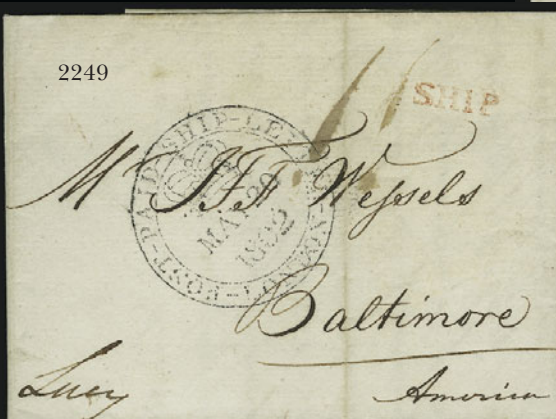 2249
SHIP
POST-PAID-SHIP-LETTER-LONDON
MAY 20
1802
Mr J F T Wessels
Baltimore
Lucy
America